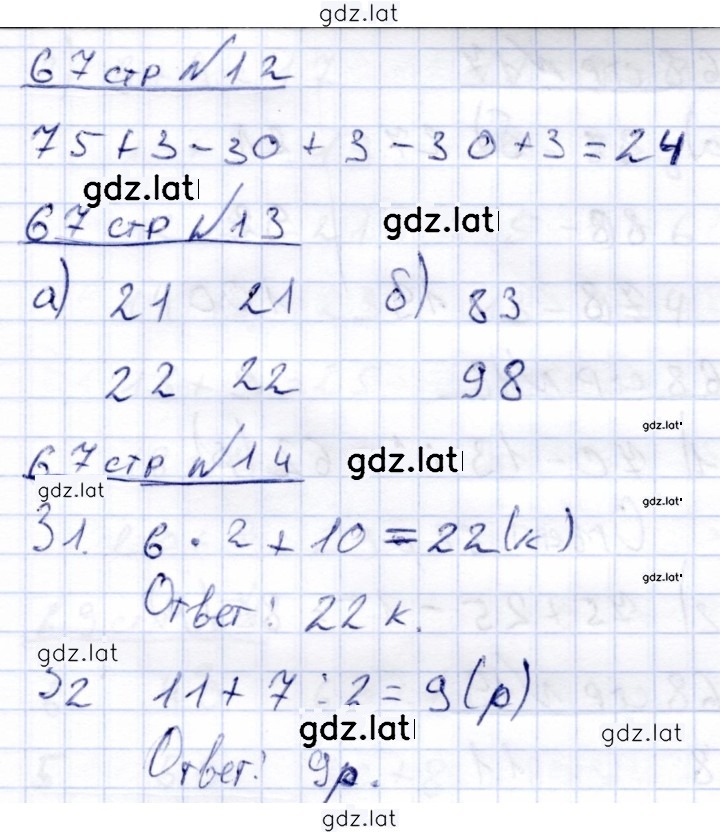 gdz.lat
67 стр №12
75+3-30+3-30+3=24
gdz.lat
67 стр №13 gdz.lat
а) 21 21 б) 83
22 22 98
gdz.lat
67 стр №14 gdz.lat
gdz.lat
gdz.lat
З1. 6·2+10=22(к)
gdz.lat
Ответ: 22 к.
gdz.lat
З2 11+7:2=9(р)
gdz.lat gdz.lat
Ответ: 9р.
gdz.lat